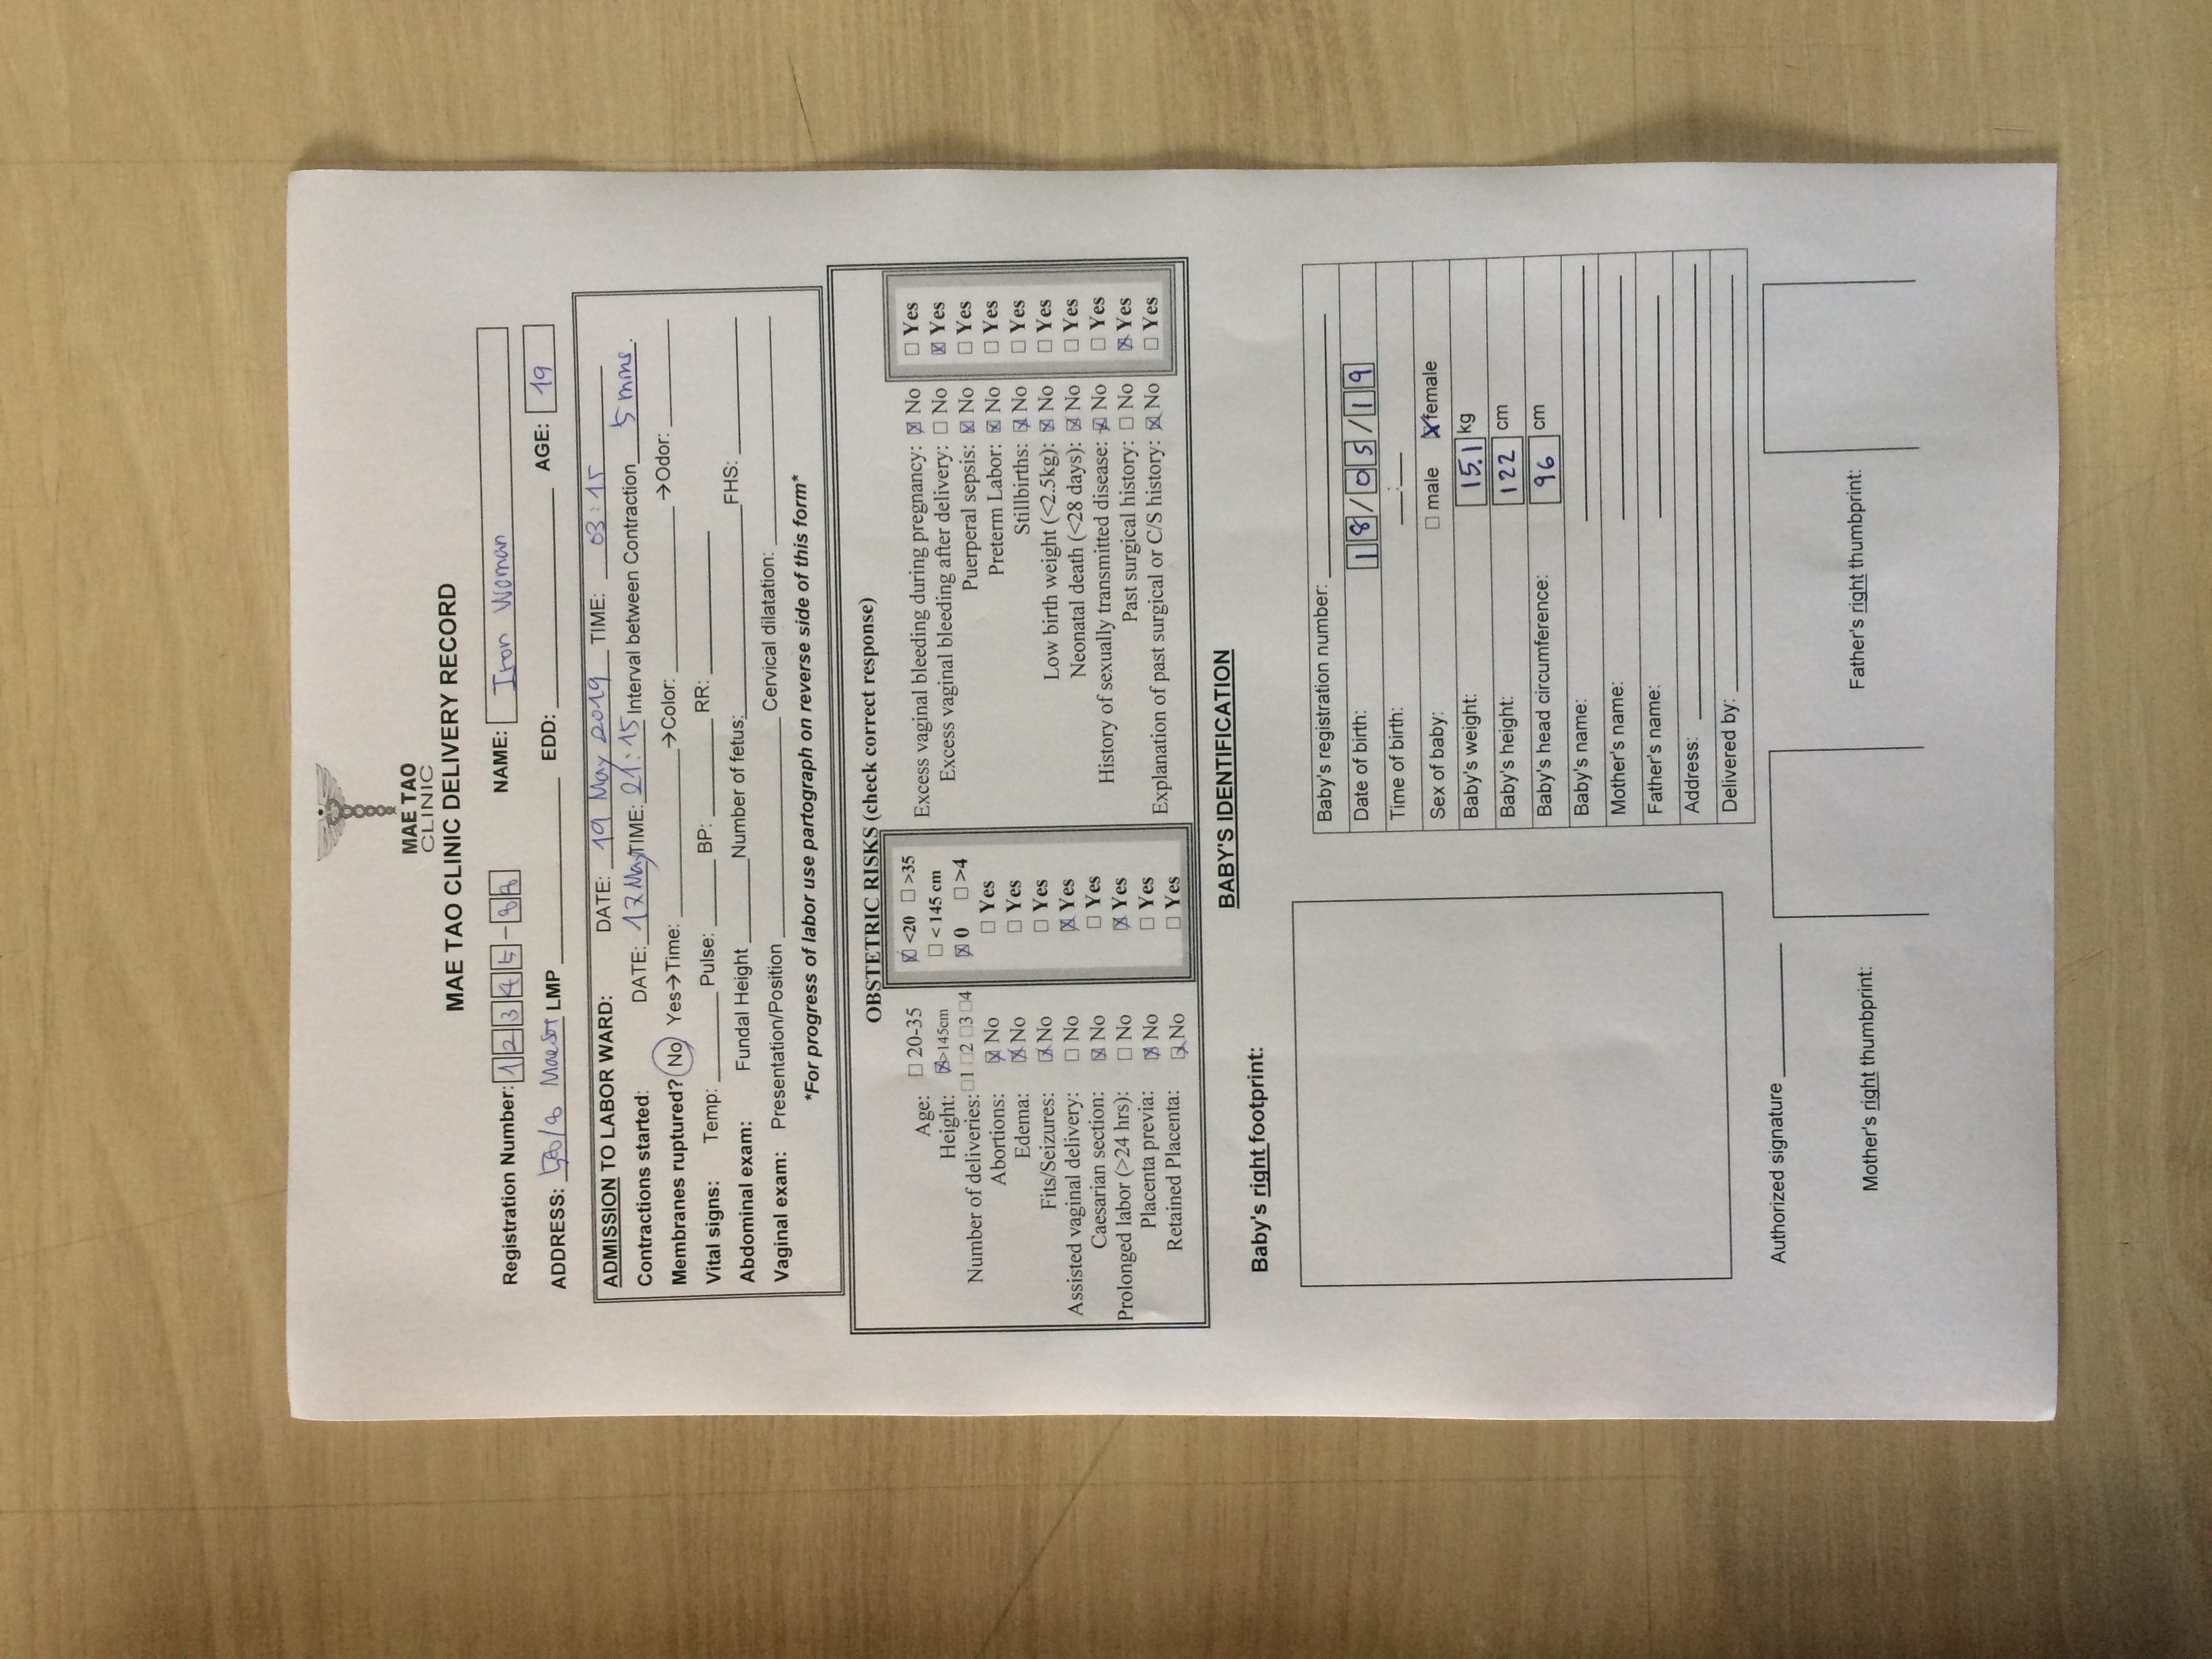 MAE TAO
CLINIC
MAE TAO CLINIC DELIVERY RECORD
Registration Number: 12345-88 NAME: Iron Woman
ADDRESS: 58/8 Maesot LMP EDD: AGE: 19
ADMISSION TO LABOR WARD: DATE: 19 May 2019 TIME: 03:15
Contractions started: DATE: 17 May TIME: 21:15 Interval between Contraction 5 mins.
Membranes ruptured? No Yes→Time: →Color: →Odor:
Vital signs: Temp: Pulse: BP: RR:
Abdominal exam: Fundal Height Number of fetus: FHS:
Vaginal exam: Presentation/Position Cervical dilatation:
*For progress of labor use partograph on reverse side of this form*
OBSTETRIC RISKS (check correct response)
Age: ☐ 20-35 ☒ <20 ☐ >35
Height: ☒ >145cm ☐ < 145 cm
Number of deliveries: ☐1 ☐2 ☐3 ☐4 ☒ 0 ☐ >4
Abortions: ☒ No ☐ Yes
Edema: ☒ No ☐ Yes
Fits/Seizures: ☒ No ☐ Yes
Assisted vaginal delivery: ☐ No ☒ Yes
Caesarian section: ☒ No ☐ Yes
Prolonged labor (>24 hrs): ☐ No ☒ Yes
Placenta previa: ☒ No ☐ Yes
Retained Placenta: ☒ No ☐ Yes
Excess vaginal bleeding during pregnancy: ☒ No ☐ Yes
Excess vaginal bleeding after delivery: ☐ No ☒ Yes
Puerperal sepsis: ☒ No ☐ Yes
Preterm Labor: ☒ No ☐ Yes
Stillbirths: ☒ No ☐ Yes
Low birth weight (<2.5kg): ☒ No ☐ Yes
Neonatal death (<28 days): ☒ No ☐ Yes
History of sexually transmitted disease: ☒ No ☐ Yes
Past surgical history: ☐ No ☒ Yes
Explanation of past surgical or C/S history: ☒ No ☐ Yes
BABY'S IDENTIFICATION
Baby's right footprint:
Baby's registration number:
Date of birth: 18/05/19
Time of birth: __:__
Sex of baby: ☐ male ☒ female
Baby's weight: 15.1 kg
Baby's height: 122 cm
Baby's head circumference: 96 cm
Baby's name:
Mother's name:
Father's name:
Address:
Delivered by:
Authorized signature
Mother's right thumbprint: Father's right thumbprint: